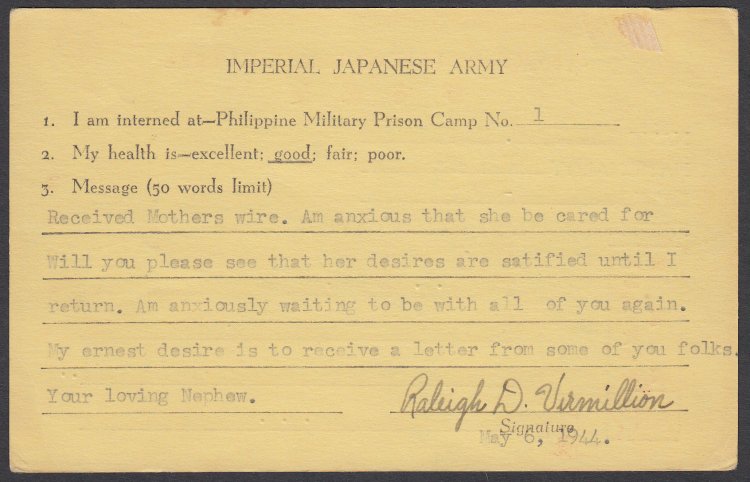 IMPERIAL JAPANESE ARMY
1. I am interned at—Philippine Military Prison Camp No. 1
2. My health is—excellent; good; fair; poor.
3. Message (50 words limit)
Received Mothers wire. Am anxious that she be cared for
Will you please see that her desires are satified until I
return. Am anxiously waiting to be with all of you again.
My ernest desire is to receive a letter from some of you folks.
Your loving Nephew. Raleigh D. Vermillion
Signature
May 6, 1944.